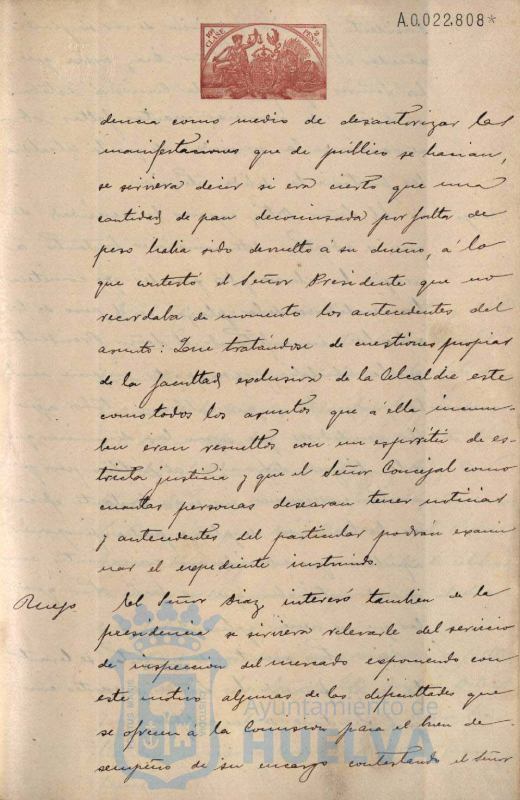 A.0.022.808*
10ª CLASE 2 PESETAS
dencia como medio de desautorizar las
manifestaciones que de público se hacian,
se sirviera decir si era cierto que una
cantidad de pan decomisada por falta de
peso habia sido devuelto á su dueño, á lo
que contestó el Señor Presidente que no
recordaba de momento los antecedentes del
asunto: Que tratándose de cuestiones propias
de la facultad exclusiva de la Alcaldia este
como todos los asuntos que á ella incum-
ben eran resueltos con un espíritu de es-
tricta justicia y que el Señor Concejal como
cuantas personas desearan tener noticias
y antecedentes del particular podrán exami-
nar el expediente instruido.
Ruego
El Señor Diaz interesó tambien de la
presidencia se sirviera relevarle del servicio
de inspeccion del mercado exponiendo con
este motivo algunas de las dificultades que
se ofrecen á la Comision para el buen de-
sempeño de su encargo contestando el Señor
Ayuntamiento de
HUELVA